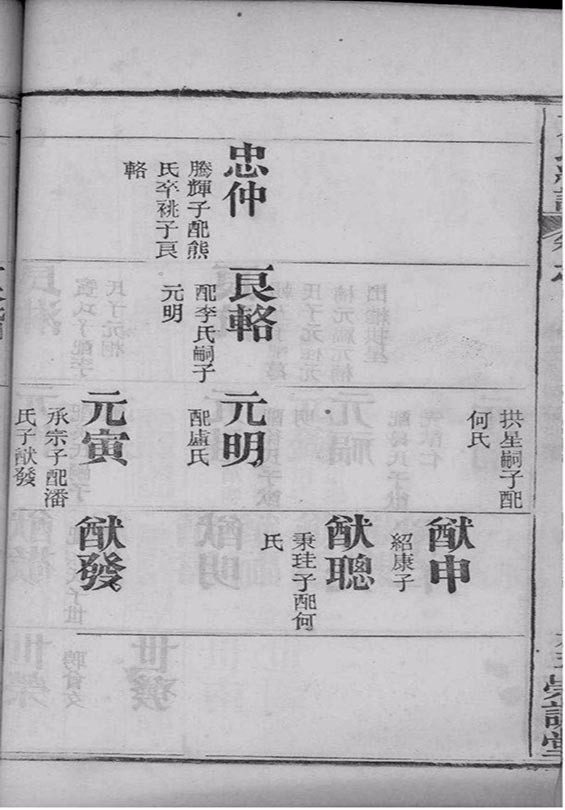 忠仲
騰輝子配熊
氏卒祧子良
輅
良輅
配李氏嗣子
元明
拱星嗣子配
何氏
元明
配盧氏
元寅
承宗子配潘
氏子猷發
猷申
紹康子
猷聰
秉珪子配何
氏
猷發